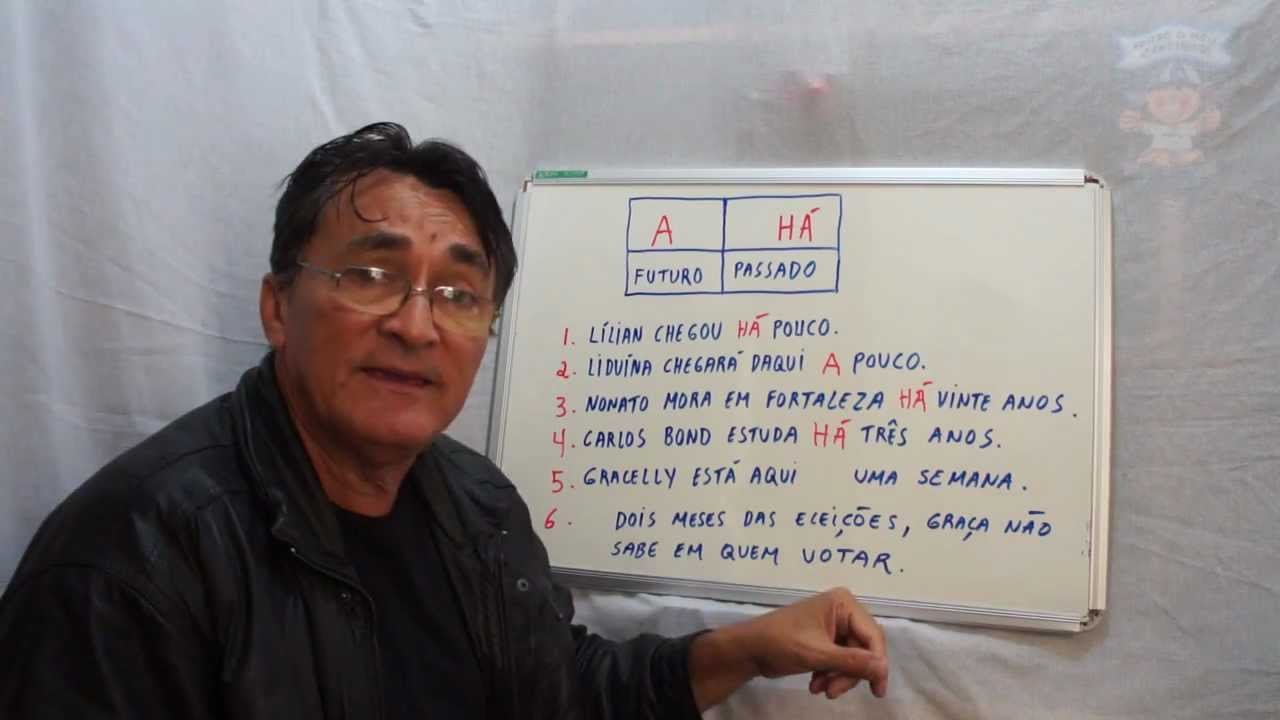 A HÁ
FUTURO PASSADO
1. LÍLIAN CHEGOU HÁ POUCO.
2. LIDUÍNA CHEGARÁ DAQUI A POUCO.
3. NONATO MORA EM FORTALEZA HÁ VINTE ANOS.
4. CARLOS BOND ESTUDA HÁ TRÊS ANOS.
5. GRACELLY ESTÁ AQUI UMA SEMANA.
6. DOIS MESES DAS ELEIÇÕES, GRAÇA NÃO
SABE EM QUEM VOTAR.